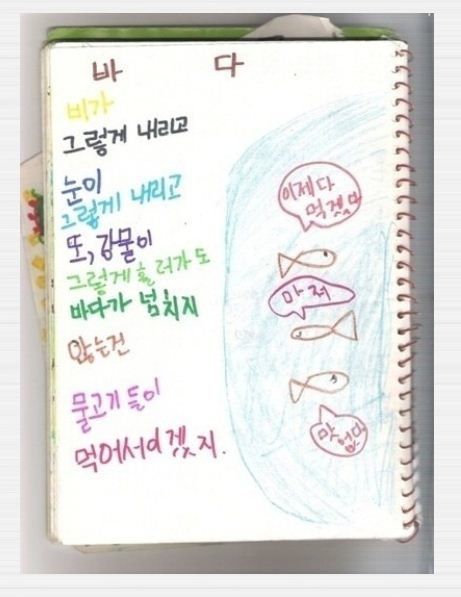 바 다
비가
그렇게 내리고
눈이
그렇게 내리고
또, 강물이
그렇게 흘러가도
바다가 넘치지
않는건
물고기들이
먹어서이겠지.
이제 다
먹겠다
마저
맛없다